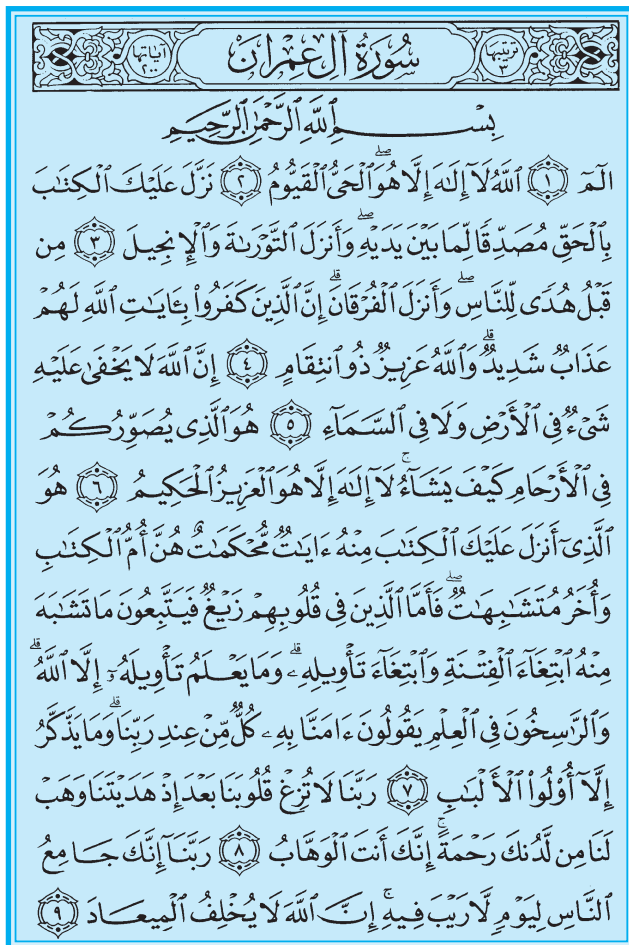 ترتيبها ٣ سُورَةُ آلِ عِمْرَانَ آياتها ٢٠٠
بِسْمِ ٱللَّهِ ٱلرَّحْمَٰنِ ٱلرَّحِيمِ
الٓمٓ ۝١ ٱللَّهُ لَآ إِلَٰهَ إِلَّا هُوَۖ ٱلْحَىُّ ٱلْقَيُّومُ ۝٢ نَزَّلَ عَلَيْكَ ٱلْكِتَٰبَ
بِٱلْحَقِّ مُصَدِّقًا لِّمَا بَيْنَ يَدَيْهِۖ وَأَنزَلَ ٱلتَّوْرَىٰةَ وَٱلْإِنجِيلَ ۝٣ مِن
قَبْلُ هُدًى لِّلنَّاسِۖ وَأَنزَلَ ٱلْفُرْقَانَۗ إِنَّ ٱلَّذِينَ كَفَرُوا۟ بِـَٔايَٰتِ ٱللَّهِ لَهُمْ
عَذَابٌ شَدِيدٌۗ وَٱللَّهُ عَزِيزٌ ذُو ٱنتِقَامٍ ۝٤ إِنَّ ٱللَّهَ لَا يَخْفَىٰ عَلَيْهِ
شَىْءٌ فِى ٱلْأَرْضِ وَلَا فِى ٱلسَّمَآءِ ۝٥ هُوَ ٱلَّذِى يُصَوِّرُكُمْ
فِى ٱلْأَرْحَامِ كَيْفَ يَشَآءُۚ لَآ إِلَٰهَ إِلَّا هُوَ ٱلْعَزِيزُ ٱلْحَكِيمُ ۝٦ هُوَ
ٱلَّذِىٓ أَنزَلَ عَلَيْكَ ٱلْكِتَٰبَ مِنْهُ ءَايَٰتٌ مُّحْكَمَٰتٌ هُنَّ أُمُّ ٱلْكِتَٰبِ
وَأُخَرُ مُتَشَٰبِهَٰتٌۖ فَأَمَّا ٱلَّذِينَ فِى قُلُوبِهِمْ زَيْغٌ فَيَتَّبِعُونَ مَا تَشَٰبَهَ
مِنْهُ ٱبْتِغَآءَ ٱلْفِتْنَةِ وَٱبْتِغَآءَ تَأْوِيلِهِۦۗ وَمَا يَعْلَمُ تَأْوِيلَهُۥٓ إِلَّا ٱللَّهُۗ
وَٱلرَّٰسِخُونَ فِى ٱلْعِلْمِ يَقُولُونَ ءَامَنَّا بِهِۦ كُلٌّ مِّنْ عِندِ رَبِّنَاۗ وَمَا يَذَّكَّرُ
إِلَّآ أُو۟لُوا۟ ٱلْأَلْبَٰبِ ۝٧ رَبَّنَا لَا تُزِغْ قُلُوبَنَا بَعْدَ إِذْ هَدَيْتَنَا وَهَبْ
لَنَا مِن لَّدُنكَ رَحْمَةًۚ إِنَّكَ أَنتَ ٱلْوَهَّابُ ۝٨ رَبَّنَآ إِنَّكَ جَامِعُ
ٱلنَّاسِ لِيَوْمٍ لَّا رَيْبَ فِيهِۚ إِنَّ ٱللَّهَ لَا يُخْلِفُ ٱلْمِيعَادَ ۝٩